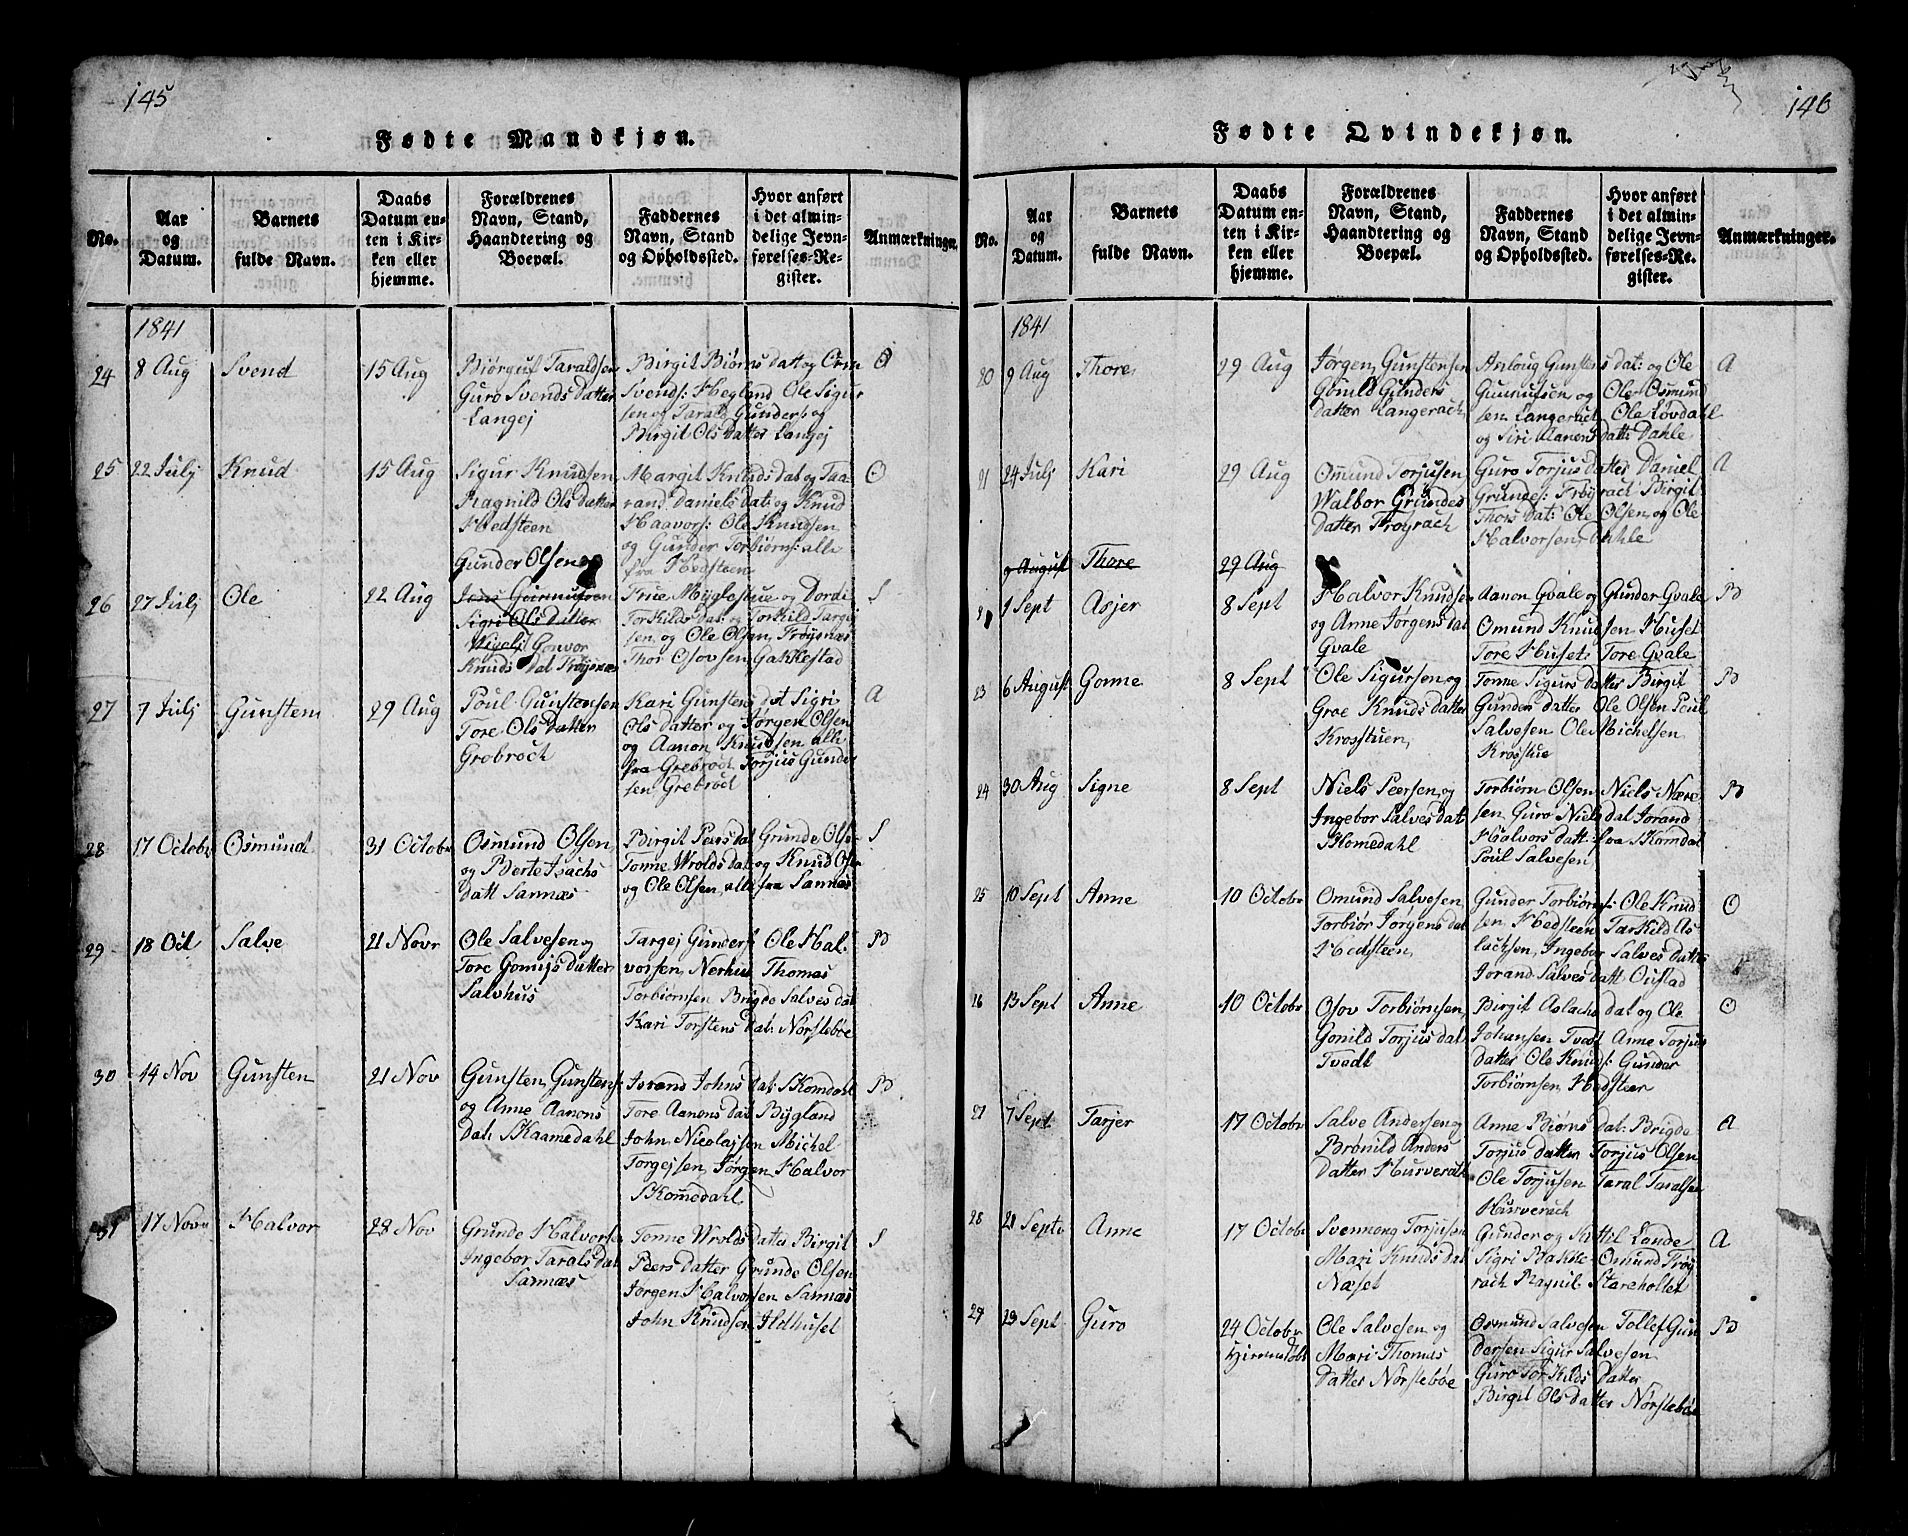 145
Fødte Mandkjøn.
No.
Aar og Datum.
Barnets fulde Navn.
Daabs Datum enten i Kirken eller hjemme.
Forældrenes Navn, Stand, Haandtering og Boepæl.
Faddernes Navn, Stand og Opholdssted.
Hvor anført i det almindelige Jevnførelses-Register.
Anmærkninger.
1841
24 8 Aug Svend 15 Aug
Biørguf Taraldsen
Guro Svends datter
Langej
Birgit Biørns datt og Orm
Svends: Hegland Ole Sigur
sen og Tarald Gunders: og
Birgit Ols datter Langej
O
25 22 Julj Knud 15 Aug
Sigur Knudsen
Ragnild Ols datter
Hedsteen
Margit Knuds dat og Taa
rand Daniels dat: og Knud
Haavors: Ole Knudsen
og Gunder Torbiørns: alle
fra Hedsteen
O
26 27 Julj Ole 22 Aug
Gunder Olsen og
Sigri Ols datter
Gonvor
Knuds dat Trøysnæs
True Myglestue og Dordi
Torkilds dat: og Torkild Targj
sen og Ole Olsen, Frøysnæs
Thor Osovsen Gakkestad
S
27 7 Julj Gunsten 29 Aug
Poul Gunstensen
Tore Ols datter
Grobroch
Kari Gunstens dat Sigri
Ols datter og Jørgen Olsen
og Aanon Knudsen alle
fra Grebroch Torjus Gunder
sen Grebroch
A
28 17 Octobr Osmund 31 Octobr
Osmund Olsen
og Berte Isachs
datt Sannæs
Birgit Peers dat Grunde Olse
Tonne Wrolds dat og Knud Olsen
og Ole Olsen, alle fra Sannæs
S
29 18 Oct Salve 21 Novr
Ole Salvesen og
Tore Gomijs datter
Salvhus
Targej Gunders: Ole Hal
vorsen, Nerhus Thomas
Torbiørnsen Brigde Salves dat
Kari Torstens dat: Nørslebøe
B
30 14 Nov Gunsten 21 Nov
Gunsten Gunstens:
og Anne Aanons
dat: Skaamedahl
Jorand Johns dat: Skomdahl
Tore Aanons dat Bygland
John Nicolajsen Michel
Torgejsen Jørgen Halvor
Skomedahl
B
31 17 Nov Halvor 28 Nov
Grunde Halvorse
Ingebor Tarals dat
Sannæs
Tonne Wrolds datter Birgit
Peers datter Grunde Olsen
Jørgen Halvorsen Sannæs
John Knudsen Ildhuset
S
146
Fødte Qvindekjøn.
No.
Aar og Datum.
Barnets fulde Navn.
Daabs Datum enten i Kirken eller hjemme.
Forældrenes Navn, Stand, Haandtering og Boepæl.
Faddernes Navn, Stand og Opholdssted.
Hvor anført i det almindelige Jevnførelses-Register.
Anmærkninger.
1841
20 9 Aug Thore 29 Aug
Jørgen Gunstensen
Gonild Gunders
datter Langerach
Anloug Gunstens dat: og Ole
Gunnufsen og Ole Osmund
sen Langerach Ole Løvdahl
og Siri Aanons datt: Dahle
A
21 24 Julj Kari 29 Aug
Omund Torjusen
Walbor Grundes
datter Frøyrach
Guro Torjus datter Daniel
Grundes: Frøyrach Birgit
Thors dat: Ole Olsen og Ole
Halvorsen, Dahle
A
9 August Thore 29 Aug
1 Sept Asjer 8 Sept
Halvor Knudsen
og Anne Jørgens dat
Qvale
Aanon Qvale og Gunder Qvale
Omund Knudsen Huset
Tore Huset: Tore Qvale
B
23 6 August Gonne 8 Sept
Ole Sigursen og
Groe Knuds datter
Krosstuen
Tonne Sigurs datter Birgit
Gunder datter Ole Olsen Poul
Salvesen Ole Michelsen
Krosstue
B
24 30 Aug Signe 8 Sept
Niels Peersen og
Ingebor Salves datt
Skomedahl
Torbiørn Olsen Niels Nære
sen Guro Niels dat Jorand
Halvors datt: fra Skomdal
Poul Salvesen
B
25 10 Sept Anne 10 Octobr
Omund Salvesen
Torbiør Jørgens dat
Hedsteen
Gunder Torbiørns: Ole Knud
sen Hedsteen Tarkild As
lachsen, Ingebor Salves datter
Jorand Salves datt Oustad
O
26 13 Sept Anne 10 Octobr
Osov Torbiørnsen
Gonild Torjus dat
Tvedt
Birgit Aslachs dat og Ole
Johansen Tvedt Anne Torjus
datter Ole Knuds: Gunder
Torbiørnsen Hedsteen
O
27 7 Sept Tarjer 17 Octobr
Salve Andersen og
Brønild Anders
datter Hurverach
Anne Biørns dat: Brigde
Torjus datter Torjus Olsen
Ole Torjusen Taral Taralsen
Hurverach
A
28 21 Septb Anne 17 Octobr
Svennong Torjusen
Mari Knuds dat
Næset
Gunder og Kittil Lande
Sigri Bakke Osmund Frøy
rach Ragnil Stareholtet
A
29 23 Sept Guro 24 Octobr
Hiemmedøbt
Ole Salvesen og
Mari Thomas
datter Nørslebøe
Osmund Salvesen Tollef Gun
dersen Sigur Salvesen
Guro Torkilds datter
Birgit Ols datter Nørslebøe
B